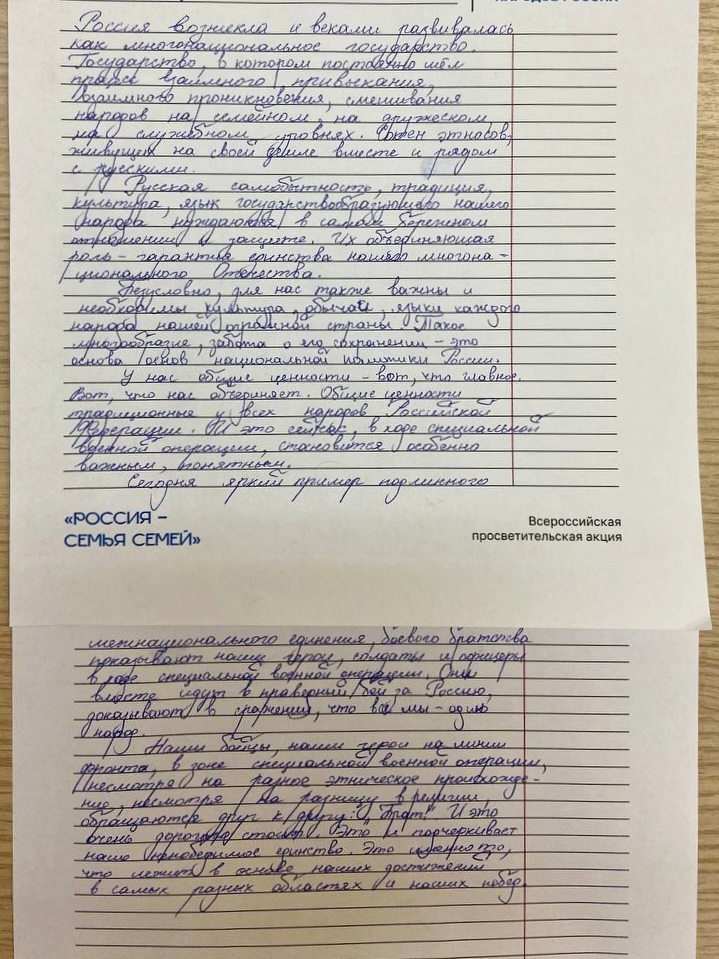 НАРОДОВ РОССИИ
Россия возникла и веками развивалась
как многонациональное государство.
Государство, в котором постоянно шёл
процесс взаимного привыкания,
взаимного проникновения, смешивания
народов на семейном, на дружеском,
на служебном уровнях. Сотен этносов,
живущих на своей земле вместе и рядом
с русскими.
Русская самобытность, традиция,
культура, язык государствообразующего нашего
народа нуждаются в самом бережном
отношении и защите. Их объединяющая
роль - гарантия единства нашего многона-
ционального Отечества.
Безусловно, для нас также важны и
необходимы культура, обычаи, языки каждого
народа нашей огромной страны. Такое
многообразие, забота о его сохранении - это
основа основ национальной политики России.
У нас общие ценности - вот, что главное.
Вот, что нас объединяет. Общие ценности
традиционные у всех народов Российской
Федерации. И это сейчас, в ходе специальной
военной операции, становится особенно
важным, понятным.
Сегодня яркий пример подлинного
«РОССИЯ –
СЕМЬЯ СЕМЕЙ»
Всероссийская
просветительская акция
межнационального единения, боевого братства
показывают наши герои, солдаты и офицеры
в ходе специальной военной операции. Они
вместе идут в праведный бой за Россию,
доказывают в сражении, что все мы - один
народ.
Наши бойцы, наши герои на линии
фронта, в зоне специальной военной операции,
несмотря на разное этническое происхожде-
ние, несмотря на разницу в религии,
обращаются друг к другу: "Брат!". И это
очень дорого стоит. Это и подчеркивает
наше непобедимое единство. Это именно то,
что лежит в основе наших достижений
в самых разных областях и наших побед.